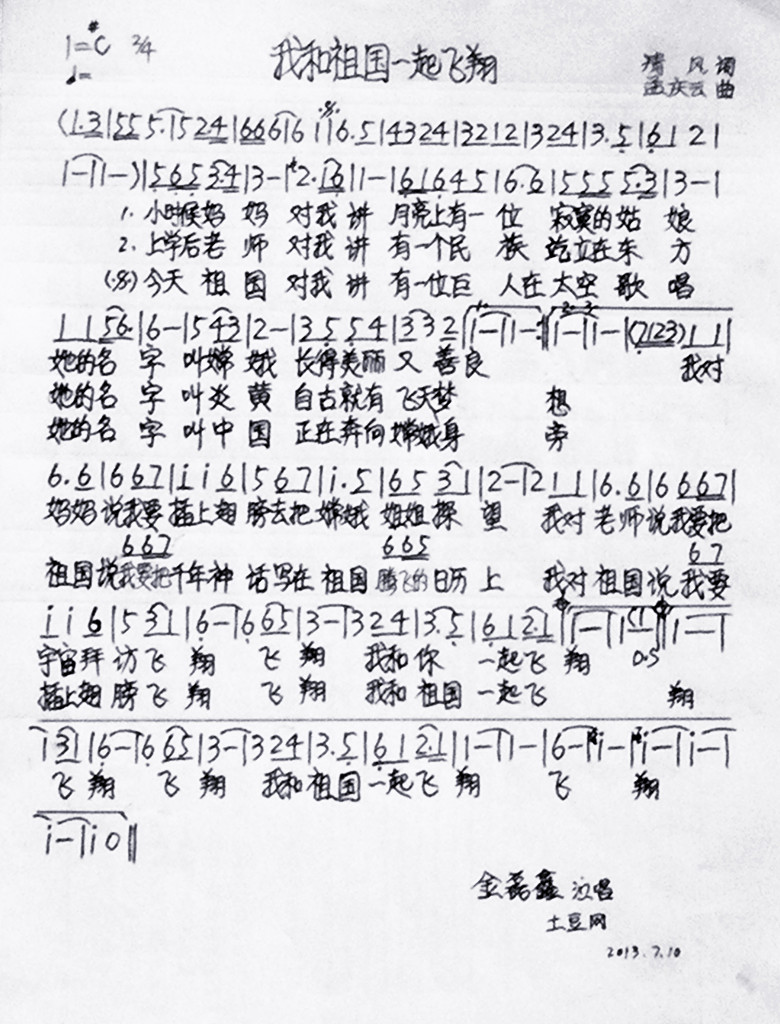 1=#C 2/4 我和祖国一起飞翔 清风 词
♩= 孟庆云 曲
(1.3|55 5.1̇5 24|66616 1̇|6.5|4324|3212|324|3.5|6121
1-|1-)|56534|3-|2.16|1-|61645|6.6|5555.3|3-|
1. 小时候妈 妈 对我 讲 月亮上有一 位 寂寞的姑 娘
2. 上学后老 师 对我 讲 有一个民 族 屹立在东 方
(𝄋) 今天 祖 国 对我 讲 有一位巨 人在太空 歌 唱
1156|6-|543|2-|3554|332|1-|1-:|1-|1-|(7123)11|
她的名 字 叫嫦 娥 长得美丽 又 善良 我对
她的名 字 叫炎 黄 自古就有 飞天梦 想
她的名 字 叫中 国 正在奔向 嫦娥身 旁
6.6|667|i i 6|567|i.5|65 31|2-|211|6.6|6667|
妈妈 说我要 插上翅 膀去把 嫦娥 姐姐探 望 我对 老师说我要把
667 665 67
祖国说我要把千年神 话写在 祖国 腾飞的日历 上 我对祖国说 我要
i i 6|5 31|6-|665|3-|324|3.5|612.1|1-|1(1|1-|
宇宙拜 访飞 翔 飞 翔 我和你 一起飞 翔 0.5
插上翅 膀飞 翔 飞 翔 我和 祖国 一起飞 翔
131|6-|665|3-|324|3.5|612.1|1-|1-|6-|i-|i-|i-|
飞 翔 飞 翔 我和祖国一起飞 翔 飞 翔
i-|i0‖
金磊鑫 演唱
土豆网
2013.7.10